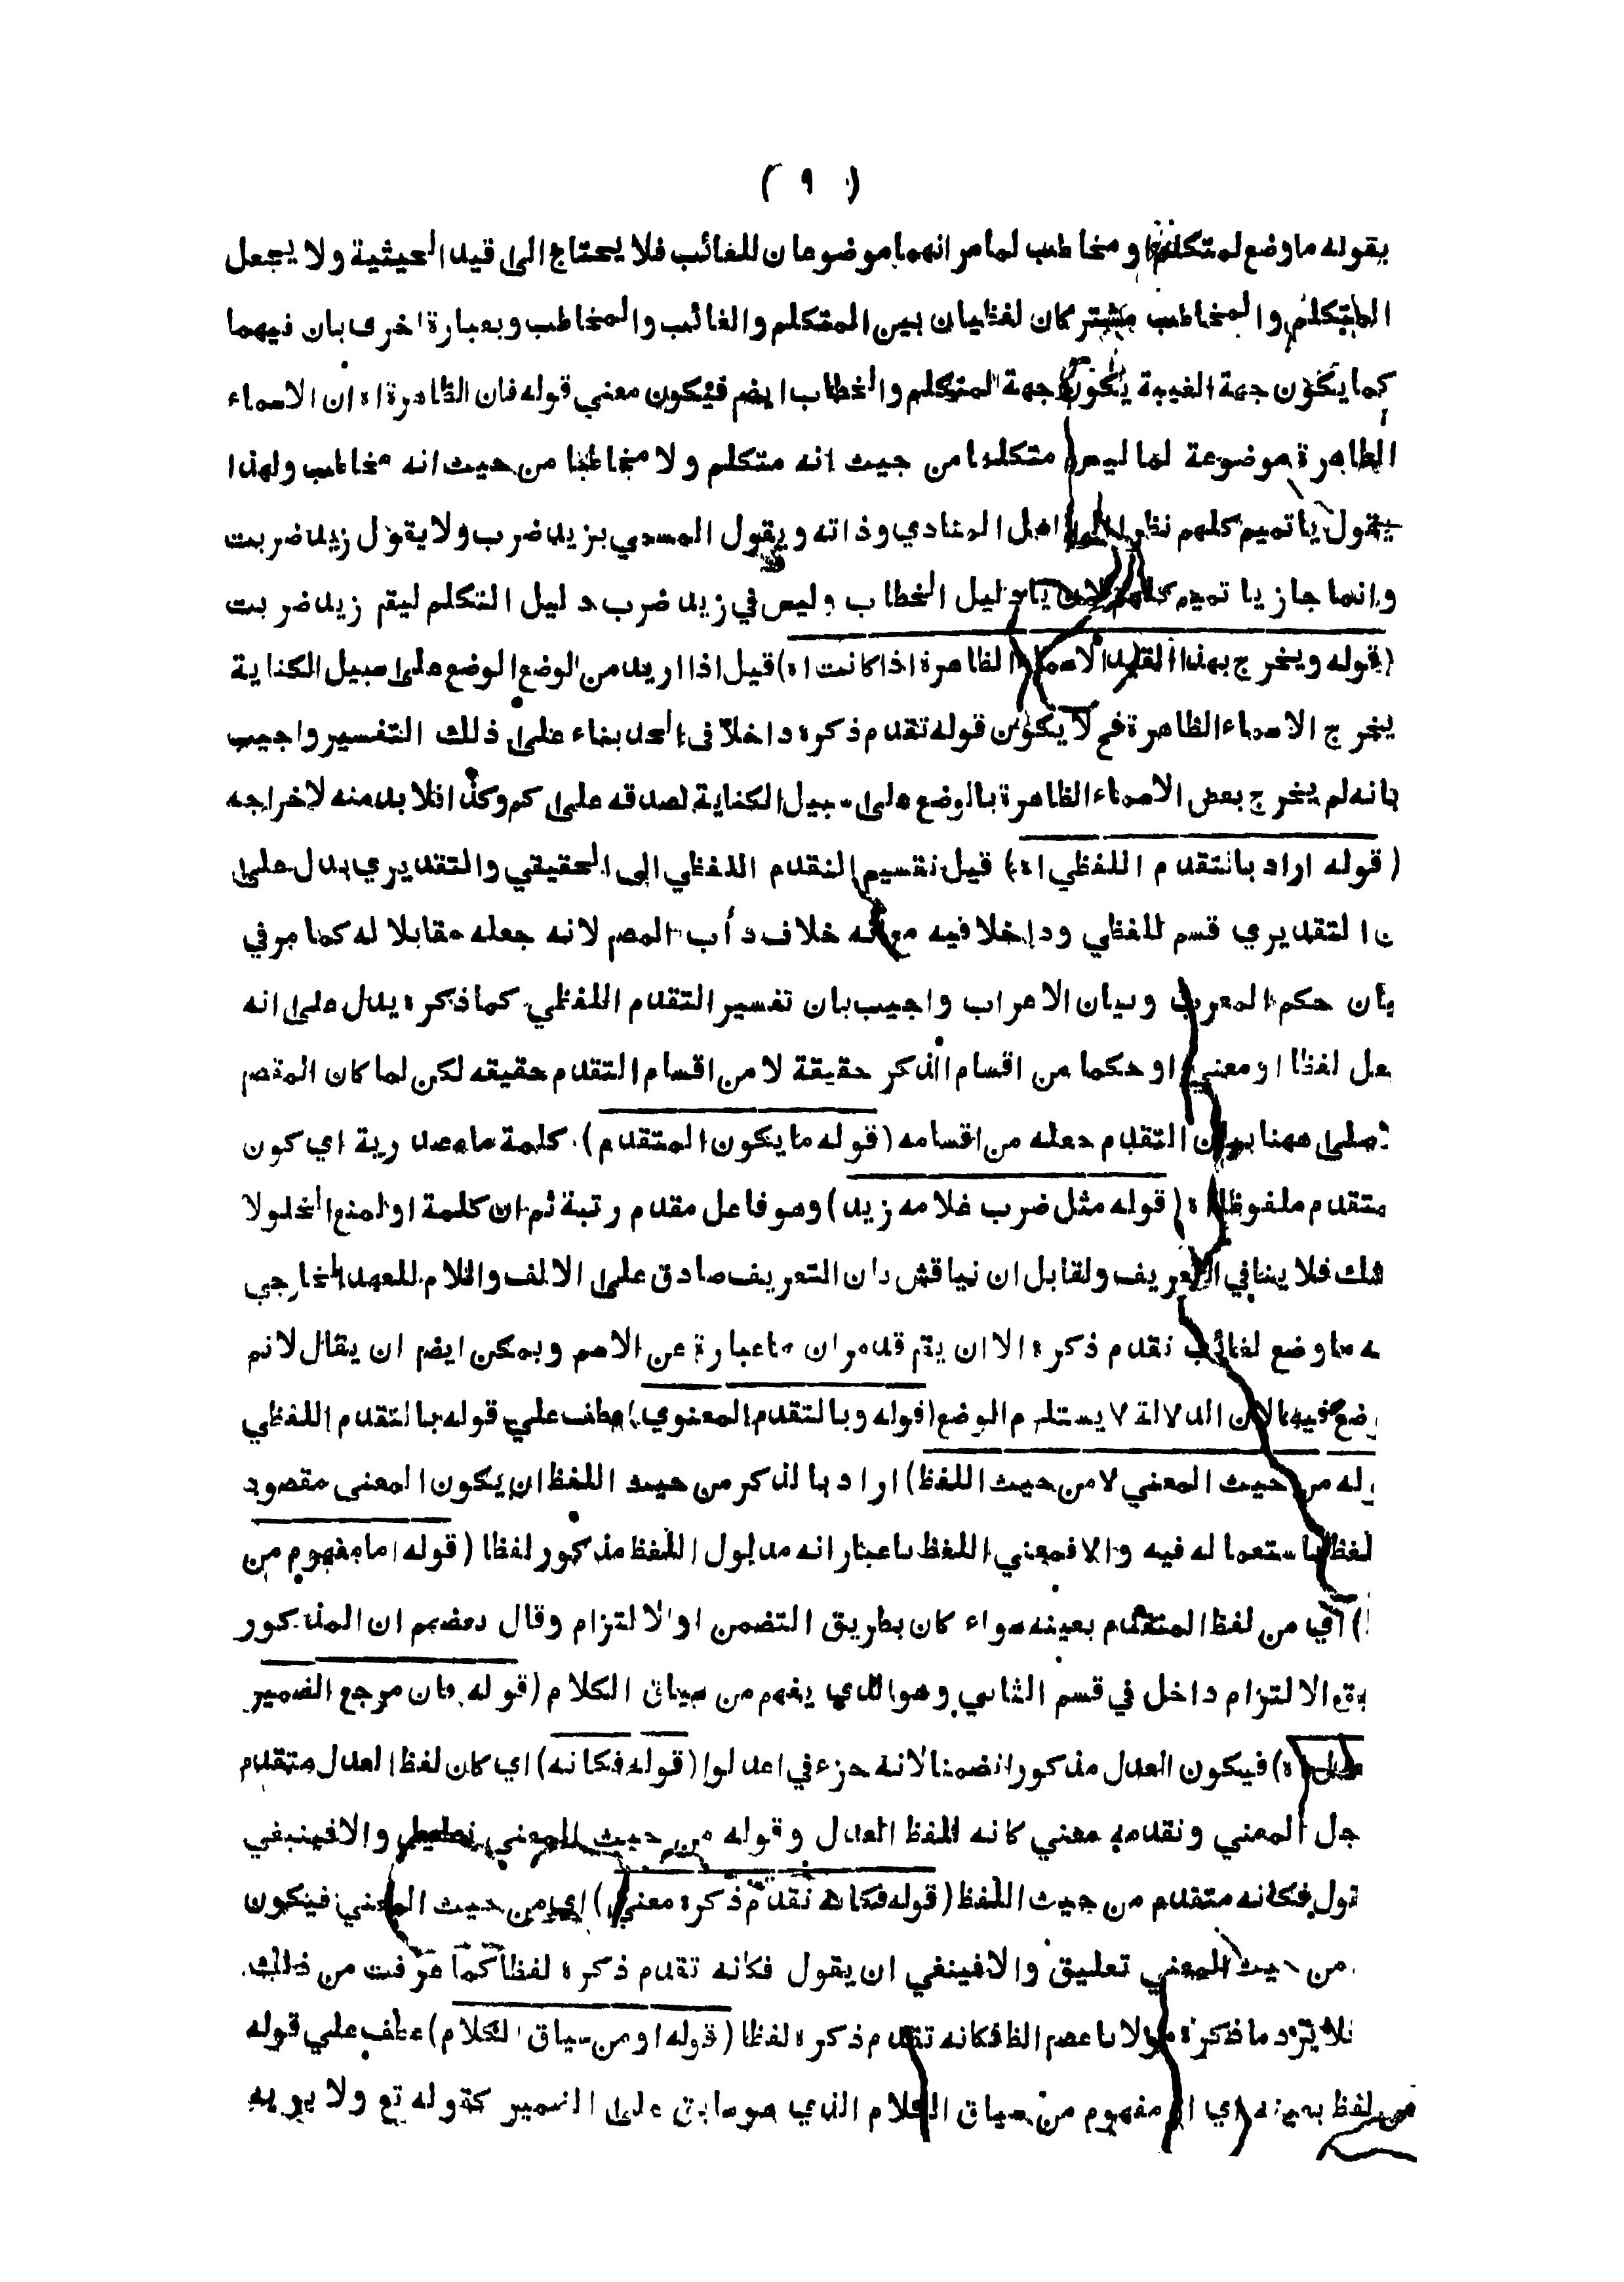 ( ٩ )
بقوله ما وضع لمتكلم او مخاطب لما مر انهما موضوعان للغائب فلا يحتاج الى قيد الحيثية ولا يجعل
المتكلم والمخاطب مشتركان لفظيان بين المتكلم والغائب والمخاطب وبعبارة اخرى بان فيهما
كما يكون جهة الغيبة يكون جهة المتكلم والخطاب ايضم فيكون معني قوله فان الظاهرة اه ان الاسماء
الظاهرة موضوعة لما ليس متكلما من حيث انه متكلم ولا مخاطبا من حيث انه مخاطب ولهذا
يقول يا تميم كلهم نظرا الى اصل المنادي وذاته ويقول المسمي بزيد ضرب ولا يقول زيد ضربت
وانما جاز يا تميم كلهم لان يا دليل الخطاب وليس في زيد ضرب دليل التكلم ليقم زيد ضربت
(قوله ويخرج بهذا القيد الاسماء الظاهرة اذا كانت اه) قيل اذا اريد من الوضع الوضع على سبيل الكناية
يخرج الاسماء الظاهرة فح لا يكون قوله تقدم ذكره داخلا في الحد بناء على ذلك التفسير واجيب
بانه لم يخرج بعض الاسماء الظاهرة بالوضع على سبيل الكناية لصدقه على كم وكذا فلا بد منه لاخراجه
(قوله اراد بالتقدم اللفظي اه) قيل تقسيم التقدم اللفظي الى الحقيقي والتقديري يدل على
ن التقديري قسم للفظي وداخلا فيه مع انه خلاف دأب المصم لانه جعله مقابلا له كما مر في
بان حكم المعرب وبيان الاعراب واجيب بان تفسير التقدم اللفظي كما ذكره يدل على انه
عل لفظا او معني او حكما من اقسام الذكر حقيقة لا من اقسام التقدم حقيقه لكن لما كان المقصم
صلى ههنا بيان التقدم جعله من اقسامه (قوله ما يكون المتقدم) كلمة ما مصدرية اي كون
متقدم ملفوظا اه (قوله مثل ضرب غلامه زيد) وهو فاعل مقدم رتبة ثم ان كلمة او لمنع الخلو لا
شك فلا ينافي التعريف ولقابل ان نياقش بان التعريف صادق على الالف واللام للعهد الخارجي
ه ما وضع لغائب تقدم ذكره الا ان يقم قد مر ان ما عبارة عن الاسم ويمكن ايضم ان يقال لا نم
وضع فيها لان الدلالة لا يستلزم الوضع (قوله وبالتقدم المعنوي) عطف علي قوله بالتقدم اللفظي
وله من حيث المعني لا من حيث اللفظ) اراد بالذكر من حيث اللفظ ان يكون المعنى مقصود
لفظ باستعماله فيه والا فمعني اللفظ باعتبار انه مدلول اللفظ مذكور لفظا (قوله اما مفهوم من
) اي من لفظ المتقدم بعينه سواء كان بطريق التضمن او الالتزام وقال بعضهم ان المذكور
يق الالتزام داخل في قسم الثاني وهو الذي يفهم من سياق الكلام (قوله فان مرجع الضمير
عدل اه) فيكون العدل مذكورا تضمنا لانه جزء في اعدلوا (قوله فكانه) اي كان لفظ العدل متقدم
جل المعني وتقدمه معني كانه للفظ العدل وقوله من حيث المعني تعليق والا فينبغي
قول فكانه متقدم من حيث اللفظ (قوله فكانه تقدم ذكره معني) اي من حيث المعني فيكون
من حيث المعني تعليق والا فينغي ان يقول فكانه تقدم ذكره لفظا كما عرفت من ذلك
فلا يرد ما ذكره مولانا عصم الظ فكانه تقدم ذكره لفظا (قوله او من سياق الكلام) عطف علي قوله
من لفظ بعينه اي او مفهوم من سياق الكلام الذي هو سابق على الضمير كقوله تع ولا بويه